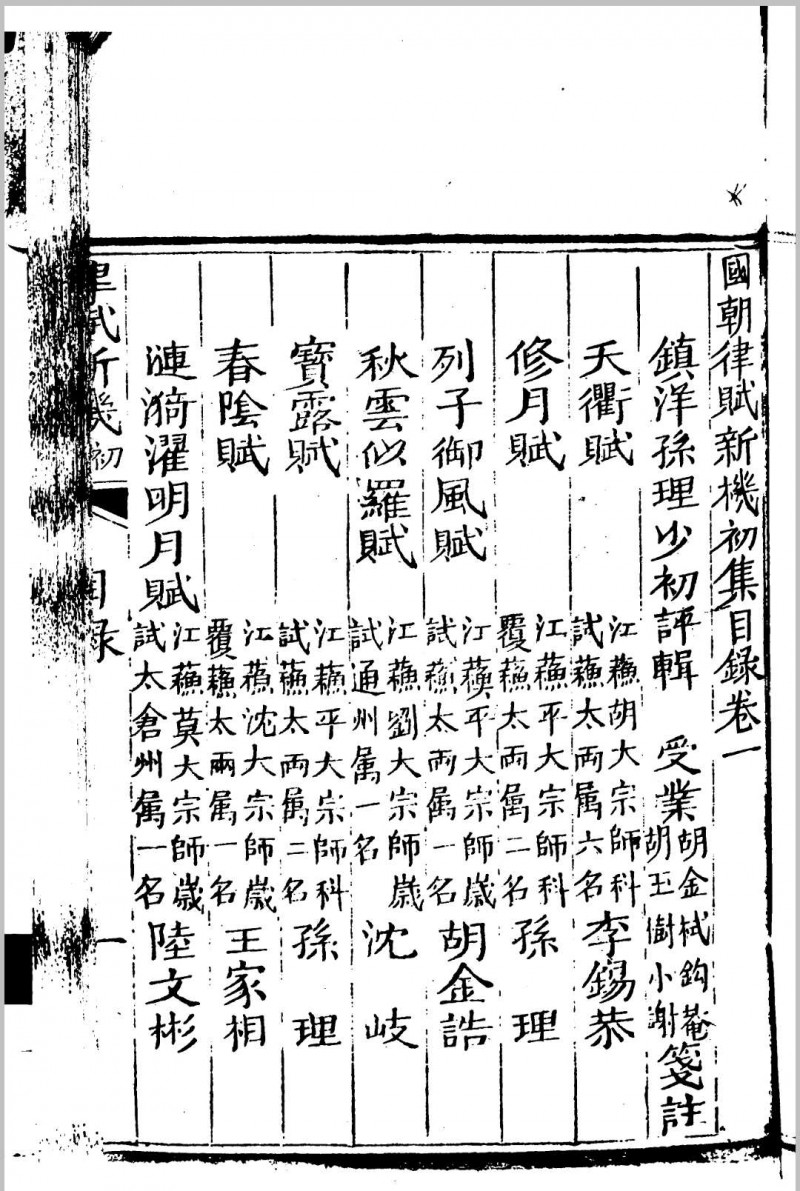 國朝律賦新機初集目録卷一
鎮洋孫理少初評輯 受業胡金栻鈎菴胡玉樹小謝箋註
天衢賦 江蘓胡大宗師科試蘓太兩属六名 李錫恭
修月賦 江蘓平大宗師科覆蘓太兩属二名 孫理
列子御風賦 江蘓平大宗師歳試蘓太兩属一名 胡金誥
秋雲似羅賦 江蘓劉大宗師歳試通州属一名 沈岐
寶露賦 江蘓平大宗師科試蘓太兩属二名 孫理
春陰賦 江蘓沈大宗師歳覆蘓太兩属一名 王家相
漣漪濯明月賦 江蘓莫大宗師歳試太倉州属一名 陸文彬
律賦新機初 目録 一